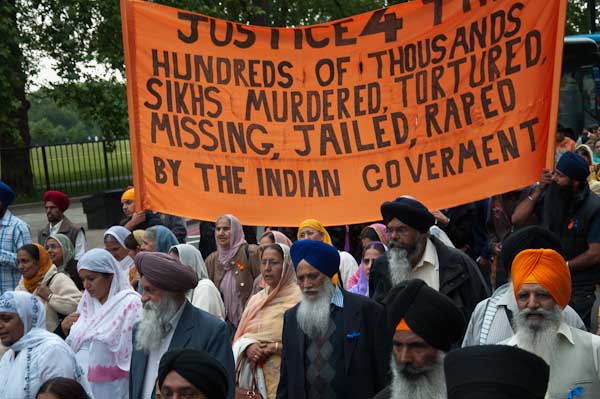 JUSTICE 4 THE
HUNDREDS OF THOUSANDS
SIKHS MURDERED, TORTURED,
MISSING, JAILED, RAPED
BY THE INDIAN GOVERMENT